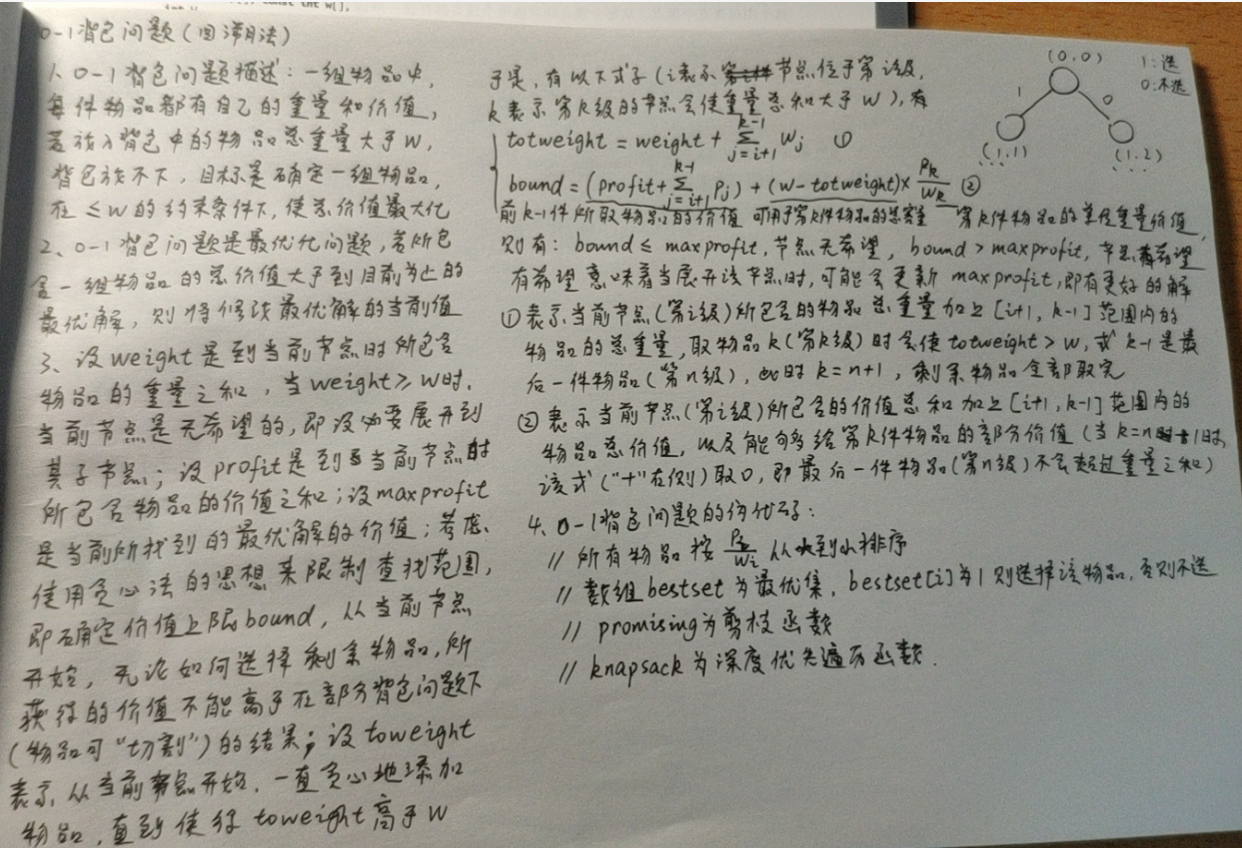 0-1背包问题(回溯法)
1、0-1背包问题描述：一组物品中，
每件物品都有自己的重量和价值，
若放入背包中的物品总重量大于W，
背包放不下，目标是确定一组物品，
在≤W的约束条件下，使总价值最大化
2、0-1背包问题是最优化问题，若所包
含一组物品的总价值大于到目前为止的
最优解，则将修改最优解的当前值
3、设weight是到当前节点时所包含
物品的重量之和，当weight≥W时，
当前节点是无希望的，即没必要展开到
其子节点；设profit是到当前节点时
所包含物品的价值之和；设maxprofit
是当前所找到的最优解的价值；考虑
使用贪心法的思想来限制查找范围，
即确定价值上限bound，从当前节点
开始，无论如何选择剩余物品，所
获得的价值不能高于在部分背包问题下
(物品可“切割”)的结果；设toweight
表示从当前节点开始，一直贪心地添加
物品，直到使得toweight高于W
于是，有以下式子(i表示节点位于第i级，
k表示第k级的节点会使重量总和大于W)，有
totweight = weight + k-1∑j=i+1 wj ①
bound = (profit + k-1∑j=i+1 Pj) + (w - totweight) × Pk/Wk ②
前k-1件所取物品的价值 可用于第k件物品的总容量 第k件物品的单位重量价值
则有：bound ≤ maxprofit，节点无希望，bound > maxprofit，节点有希望
有希望意味着当展开该节点时，可能会更新maxprofit，即有更好的解
①表示当前节点(第i级)所包含的物品总重量加上[i+1, k-1]范围内的
物品的总重量，取物品k(第k级)时会使totweight > w，或k-1是最
后一件物品(第n级)，此时k=n+1，剩余物品全部取完
②表示当前节点(第i级)所包含的价值总和加上[i+1, k-1]范围内的
物品总价值，以及能够多给第k件物品的部分价值(当k=n+1时，
该式(“+”右侧)取0，即最后一件物品(第n级)不会超过重量之和)
4、0-1背包问题的伪代码：
// 所有物品按Pi/Wi从大到小排序
// 数组bestset为最优集，bestset[i]为1则选择该物品，否则不选
// promising为剪枝函数
// knapsack为深度优先遍历函数.
(0,0)
1：选
0：不选
1
0
(1,1)
(1,2)